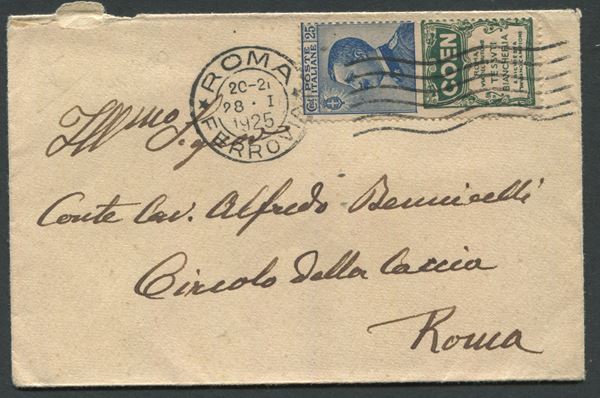 ROMA
20-21
28·I
1925
FERROVIA
POSTE
ITALIANE
Cmi 25
COEN
TESSUTI
BIANCHERIA
Ill^mo Sig^r
Conte Cav. Alfredo Bennicelli
Circolo della Caccia
Roma